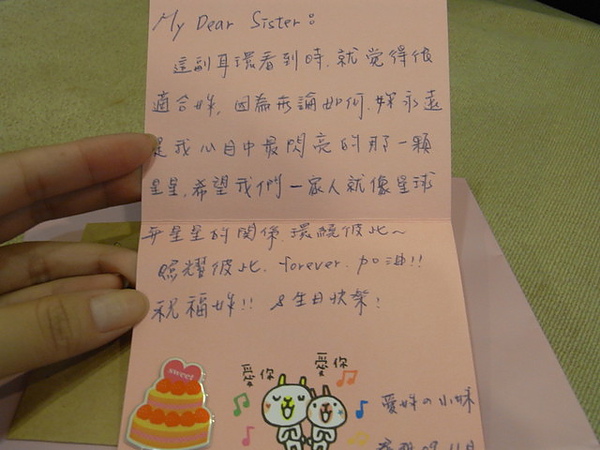 My Dear Sister:
這副耳環看到時,就覺得很
適合妳,因為無論如何,妳永遠
是我心目中最閃亮的那一顆
星星,希望我們一家人就像星球
與星星的關係,環繞彼此~
照耀彼此,forever,加油!!
祝福妳!! &生日快樂!
sweet
愛你
愛你
愛妳の小妹
09.11月